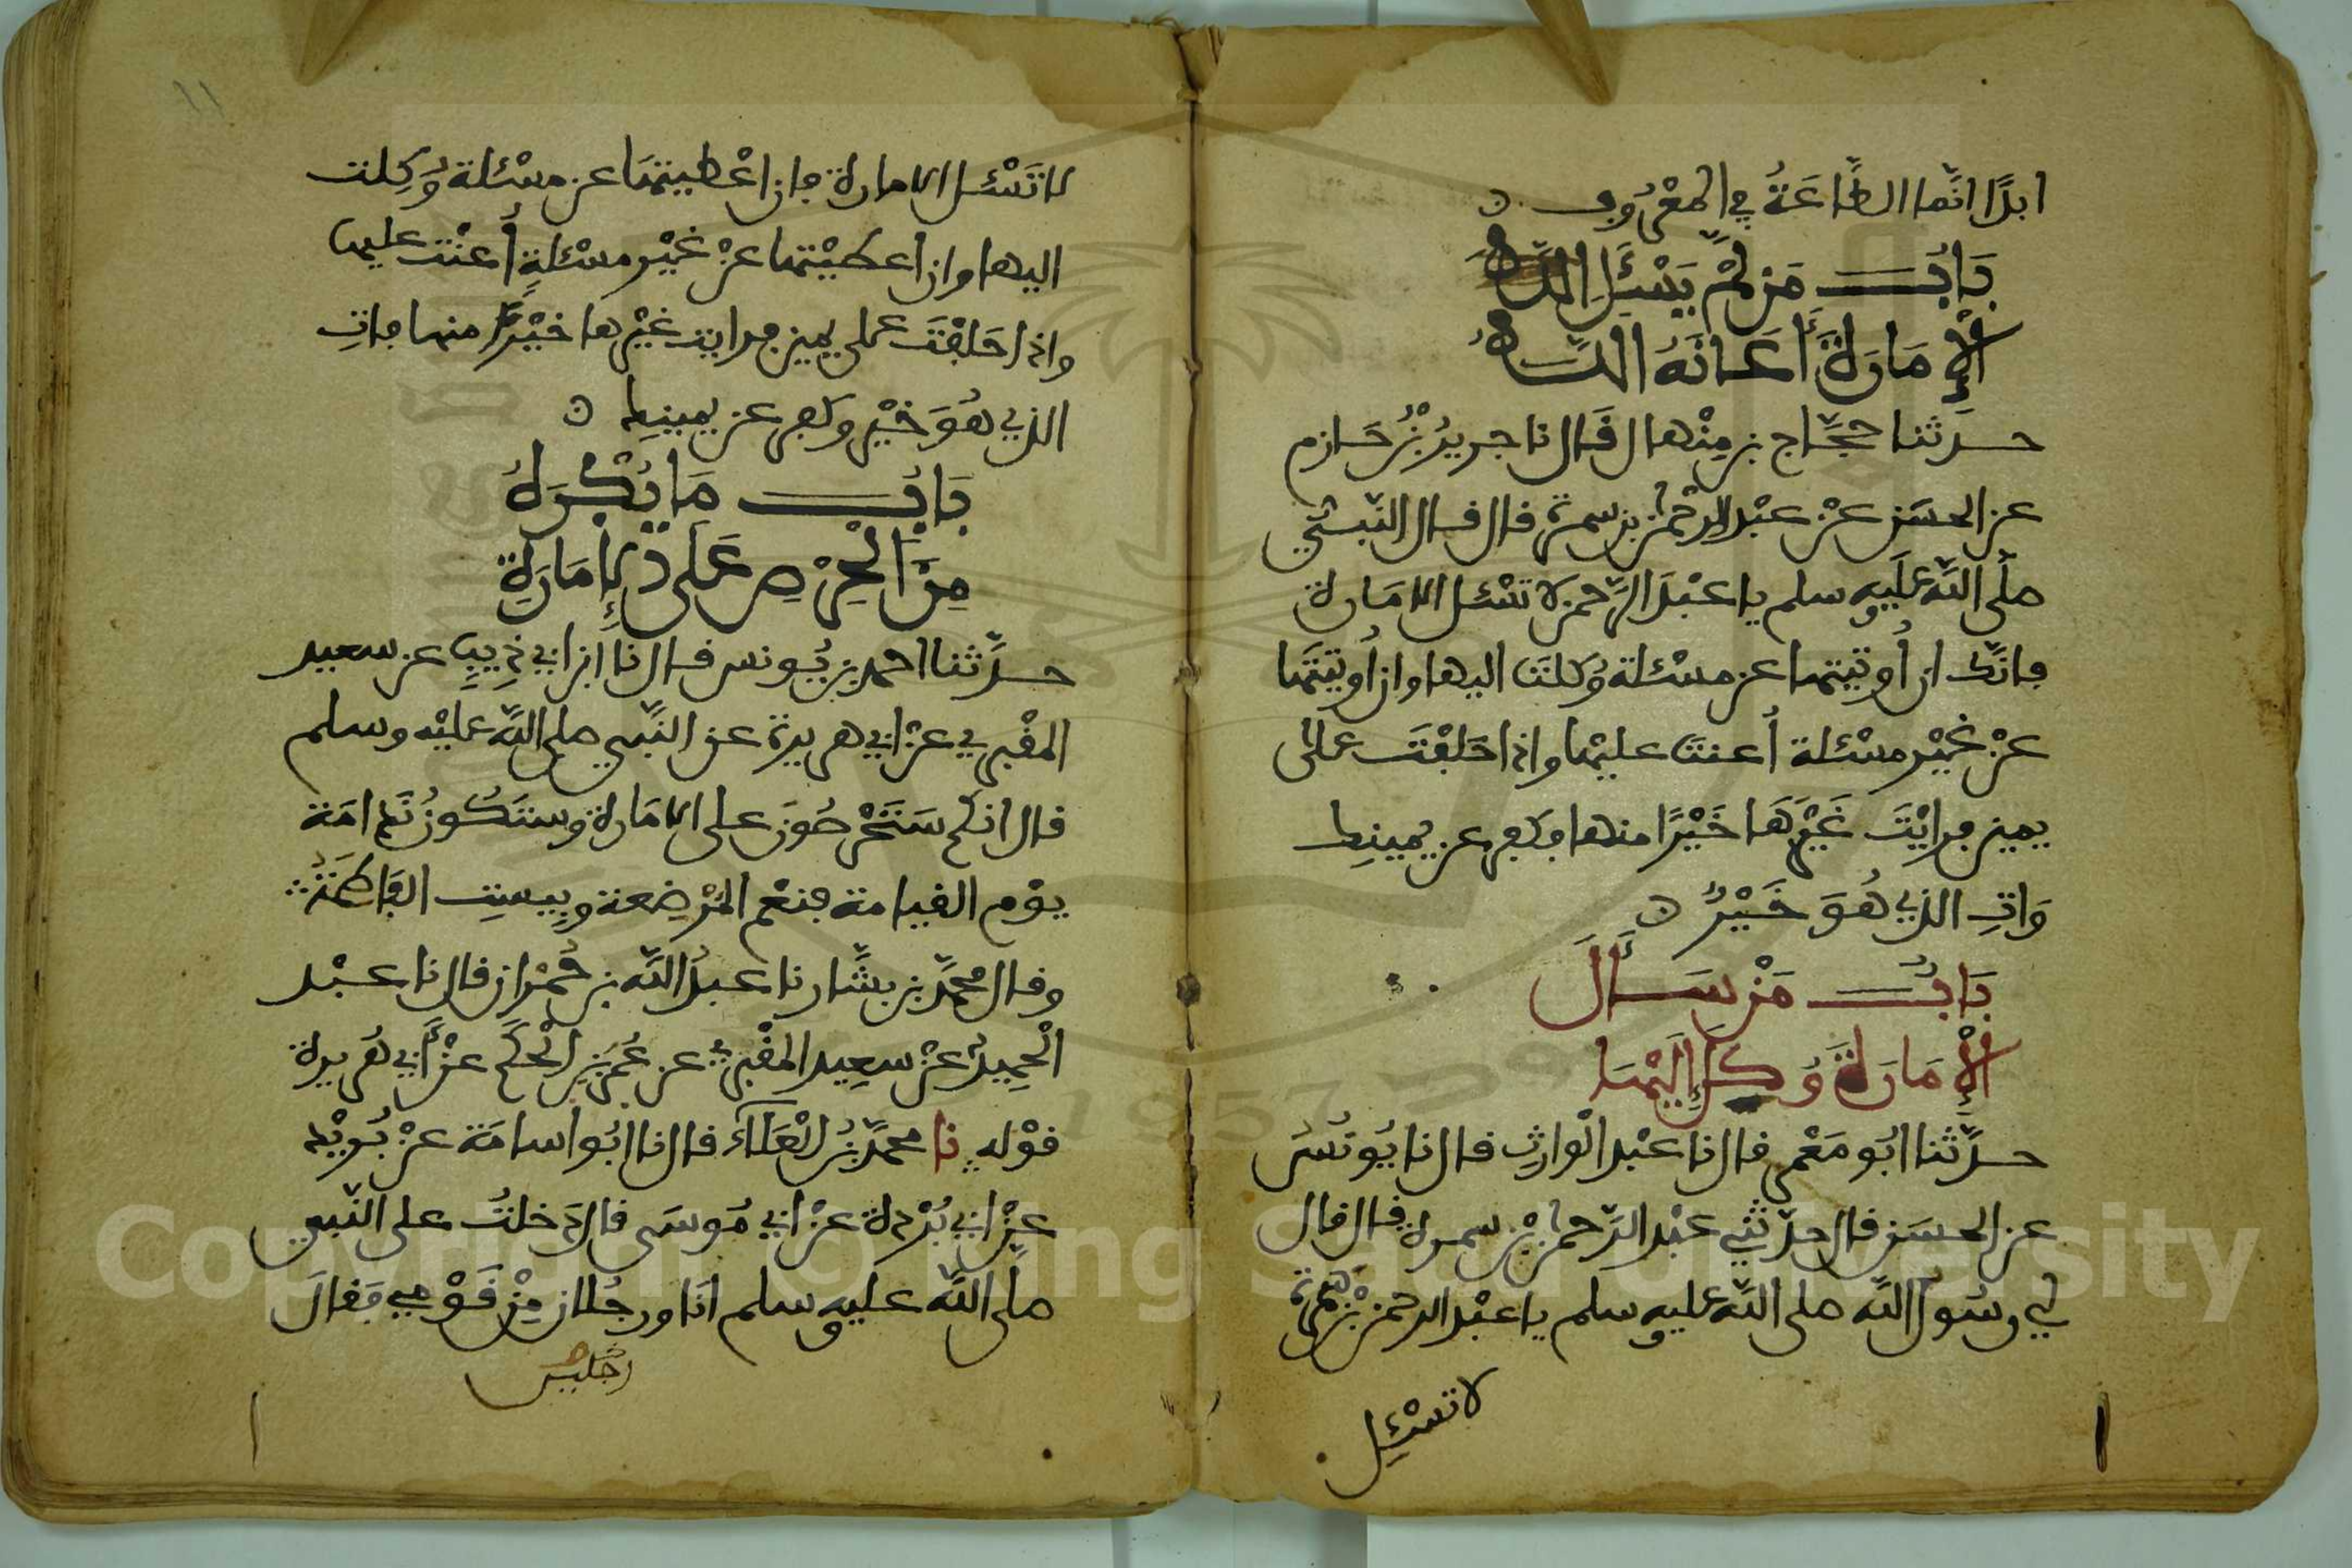 ابدًا انَّما الطَّاعَةُ في المعْرُوف
بَابُ مَن لمْ يَسْئَلِ
الْإِمَارَةَ أَعَانَهُ اللَّهُ
حدَّثنا حجَّاج بن مِنْهال قَال نا جريرُ بْنُ حَازم
عن الحسَن عنْ عبْد الرحْمن بن سمرة قال قال النَّبيّ
صلَّى اللَّه عَلَيه وسلم يا عبْدَ الرَّحمن لا تسْئل الامَارة
فانَّك ان أُوتيتها عن مسْئلة وُكلتَ اليها وان أُوتيتَها
عنْ غيْر مسْئلة أُعنتَ عليْها واذا حَلفْتَ على
يمين فرايْتَ غَيْرَهَا خَيْرًا منها فكفر عن يمينك
وَاتِ الذي هُوَ خَيْرٌ
بَابُ مَنْ سَأَلَ
الْإِمَارَةَ وُكِلَ إِلَيْهَا
حدَّثنا ابُو مَعْمر قال نا عبْد الْوارثِ قال نا يُونُسُ
عن الحسَن قال حدّثنِي عَبْد الرَّحمن بْن سمرة قال قال
لي رسُول اللَّه صلى اللَّه عليه وسلم يا عبْد الرحمن بْن سَمُرة
لا تسْئل
لا تَسْئَل الامارة فان اعْطيتهَا عن مسْئلة وُكِلت
اليها وان اعطيْتها عنْ غيْر مسْئلةٍ أُعنْت عليها
واذا حَلفْتَ على يمين فرايت غيْرها خيْرًا منها فاتِ
الذي هُوَ خيْر وكفر عن يمينك
بَابُ مَا يُكْرَهُ
مِنَ الْحِرْصِ عَلَى الْإِمَارَةِ
حدَّثنا احمد بن يُونس قال نا ابن ابي ذِيبٍ عن سعيد
المقْبري عنْ ابي هريرة عن النَّبي صلى اللَّه عليْه وسلم
قال انكم سَتَحْرصُونَ على الامَارة وستَكُونُ نَدامَة
يوْم القيامة فنعْم المرْضعة وبِيستِ الفَاطمَةُ
وقال محمَّد بن بشَّار نا عبدُ اللَّه بن حُمْران قال نا عبْد
الْحمِيد عنْ سعِيد المقْبري عن عُمَر بْنِ الْحَكَم عنْ أَبي هُريرة
قوْله نا محمَّد بْنُ الْعَلَاء قال نا ابُو اسامَة عنْ بُريْد
عنْ ابي بُرْدة عنْ ابي مُوسَى قال دَخلتُ على النَّبي
صلَّى اللَّه عليه وسلم انَا ورجُلان مِنْ قَوْمي فَقالَ